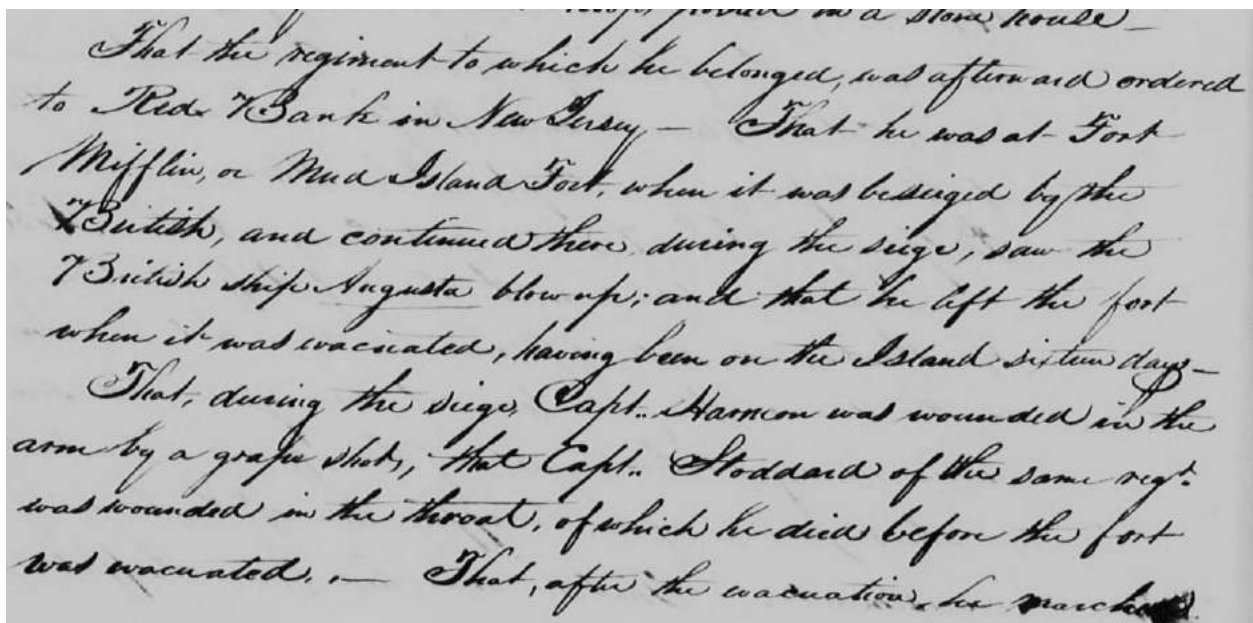 troops posted in a stone house —
That the regiment to which he belonged, was afterward ordered
to Red Bank in New Jersey — That he was at Fort
Mifflin, or Mud Island Fort, when it was besieged by the
British, and continued there during the siege, saw the
British ship Augusta blow up; and that he left the fort
when it was evacuated, having been on the Island sixteen days —
That, during the siege, Capt. Harmon was wounded in the
arm by a grape shot, that Capt. Stoddard of the same regt.
was wounded in the throat, of which he died before the fort
was evacuated. — That, after the evacuation, he marched